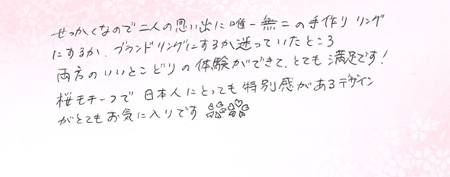 せっかくなので二人の思い出に唯一無二の手作りリング
にするか、ブランドリングにするか迷っていたところ
両方のいいとこどりの体験ができて、とても満足です!
桜モチーフで日本人にとっても特別感があるデザイン
がとてもお気に入りです